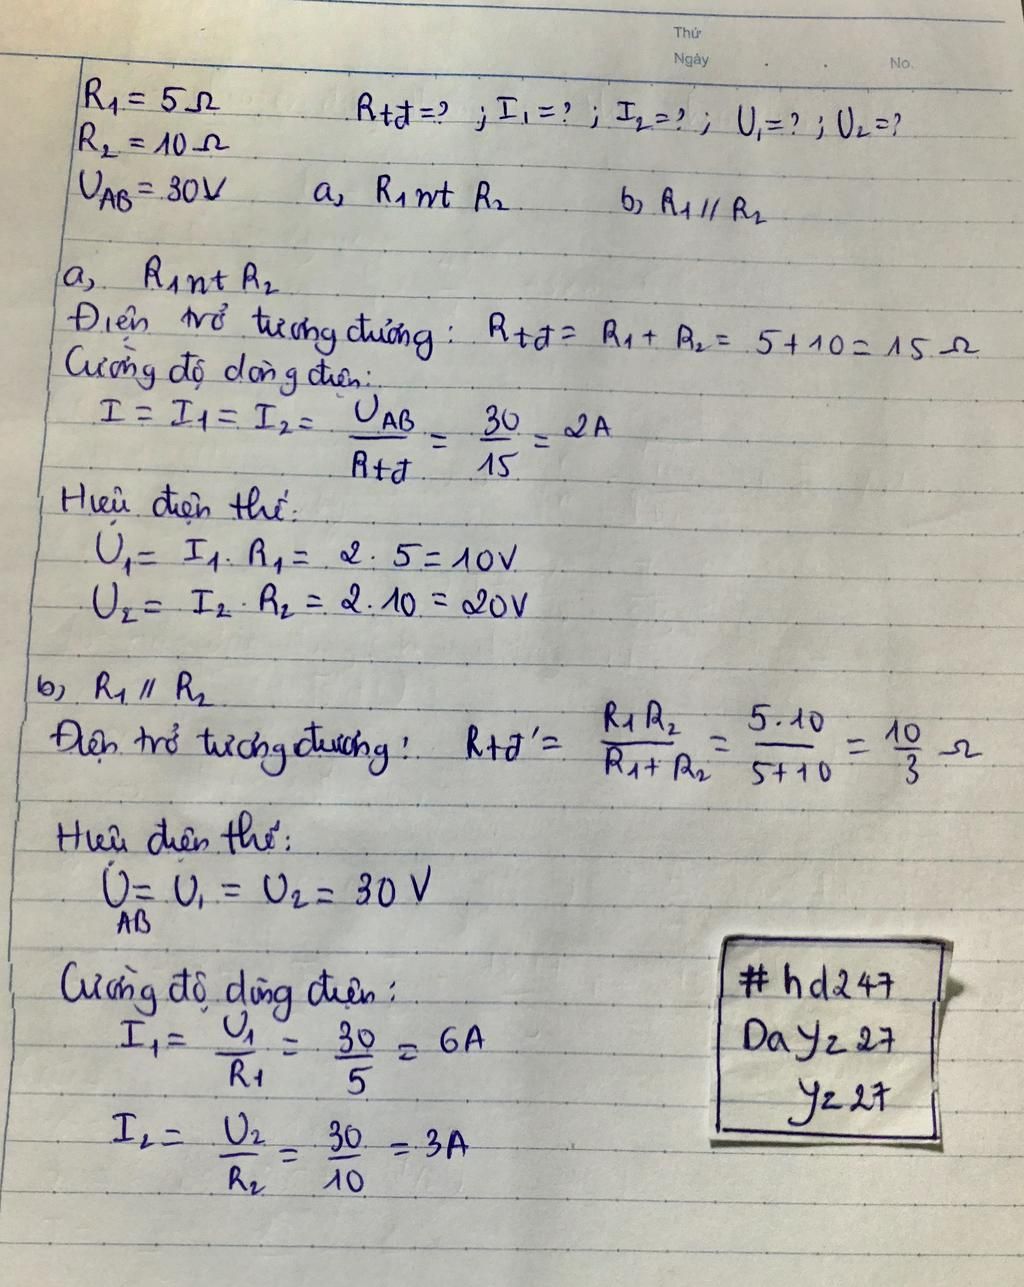 Thứ
Ngày . . No.
R1 = 5Ω Rtđ = ? ; I1 = ? ; I2 = ? ; U1 = ? ; U2 = ?
R2 = 10Ω
UAB = 30V a, R1 nt R2 b, R1 // R2
a, R1 nt R2
Điện trở tương đương : Rtđ = R1 + R2 = 5 + 10 = 15 Ω
Cường độ dòng điện:
I = I1 = I2 = UAB / Rtđ = 30 / 15 = 2A
Hiệu điện thế:
U1 = I1 . R1 = 2 . 5 = 10V
U2 = I2 . R2 = 2 . 10 = 20V
b, R1 // R2
Điện trở tương đương : Rtđ' = R1 R2 / R1 + R2 = 5 . 10 / 5 + 10 = 10 / 3 Ω
Hiệu điện thế:
UAB = U1 = U2 = 30 V
Cường độ dòng điện :
I1 = U1 / R1 = 30 / 5 = 6A
I2 = U2 / R2 = 30 / 10 = 3A
# hd247
Da yz 27
yz 27